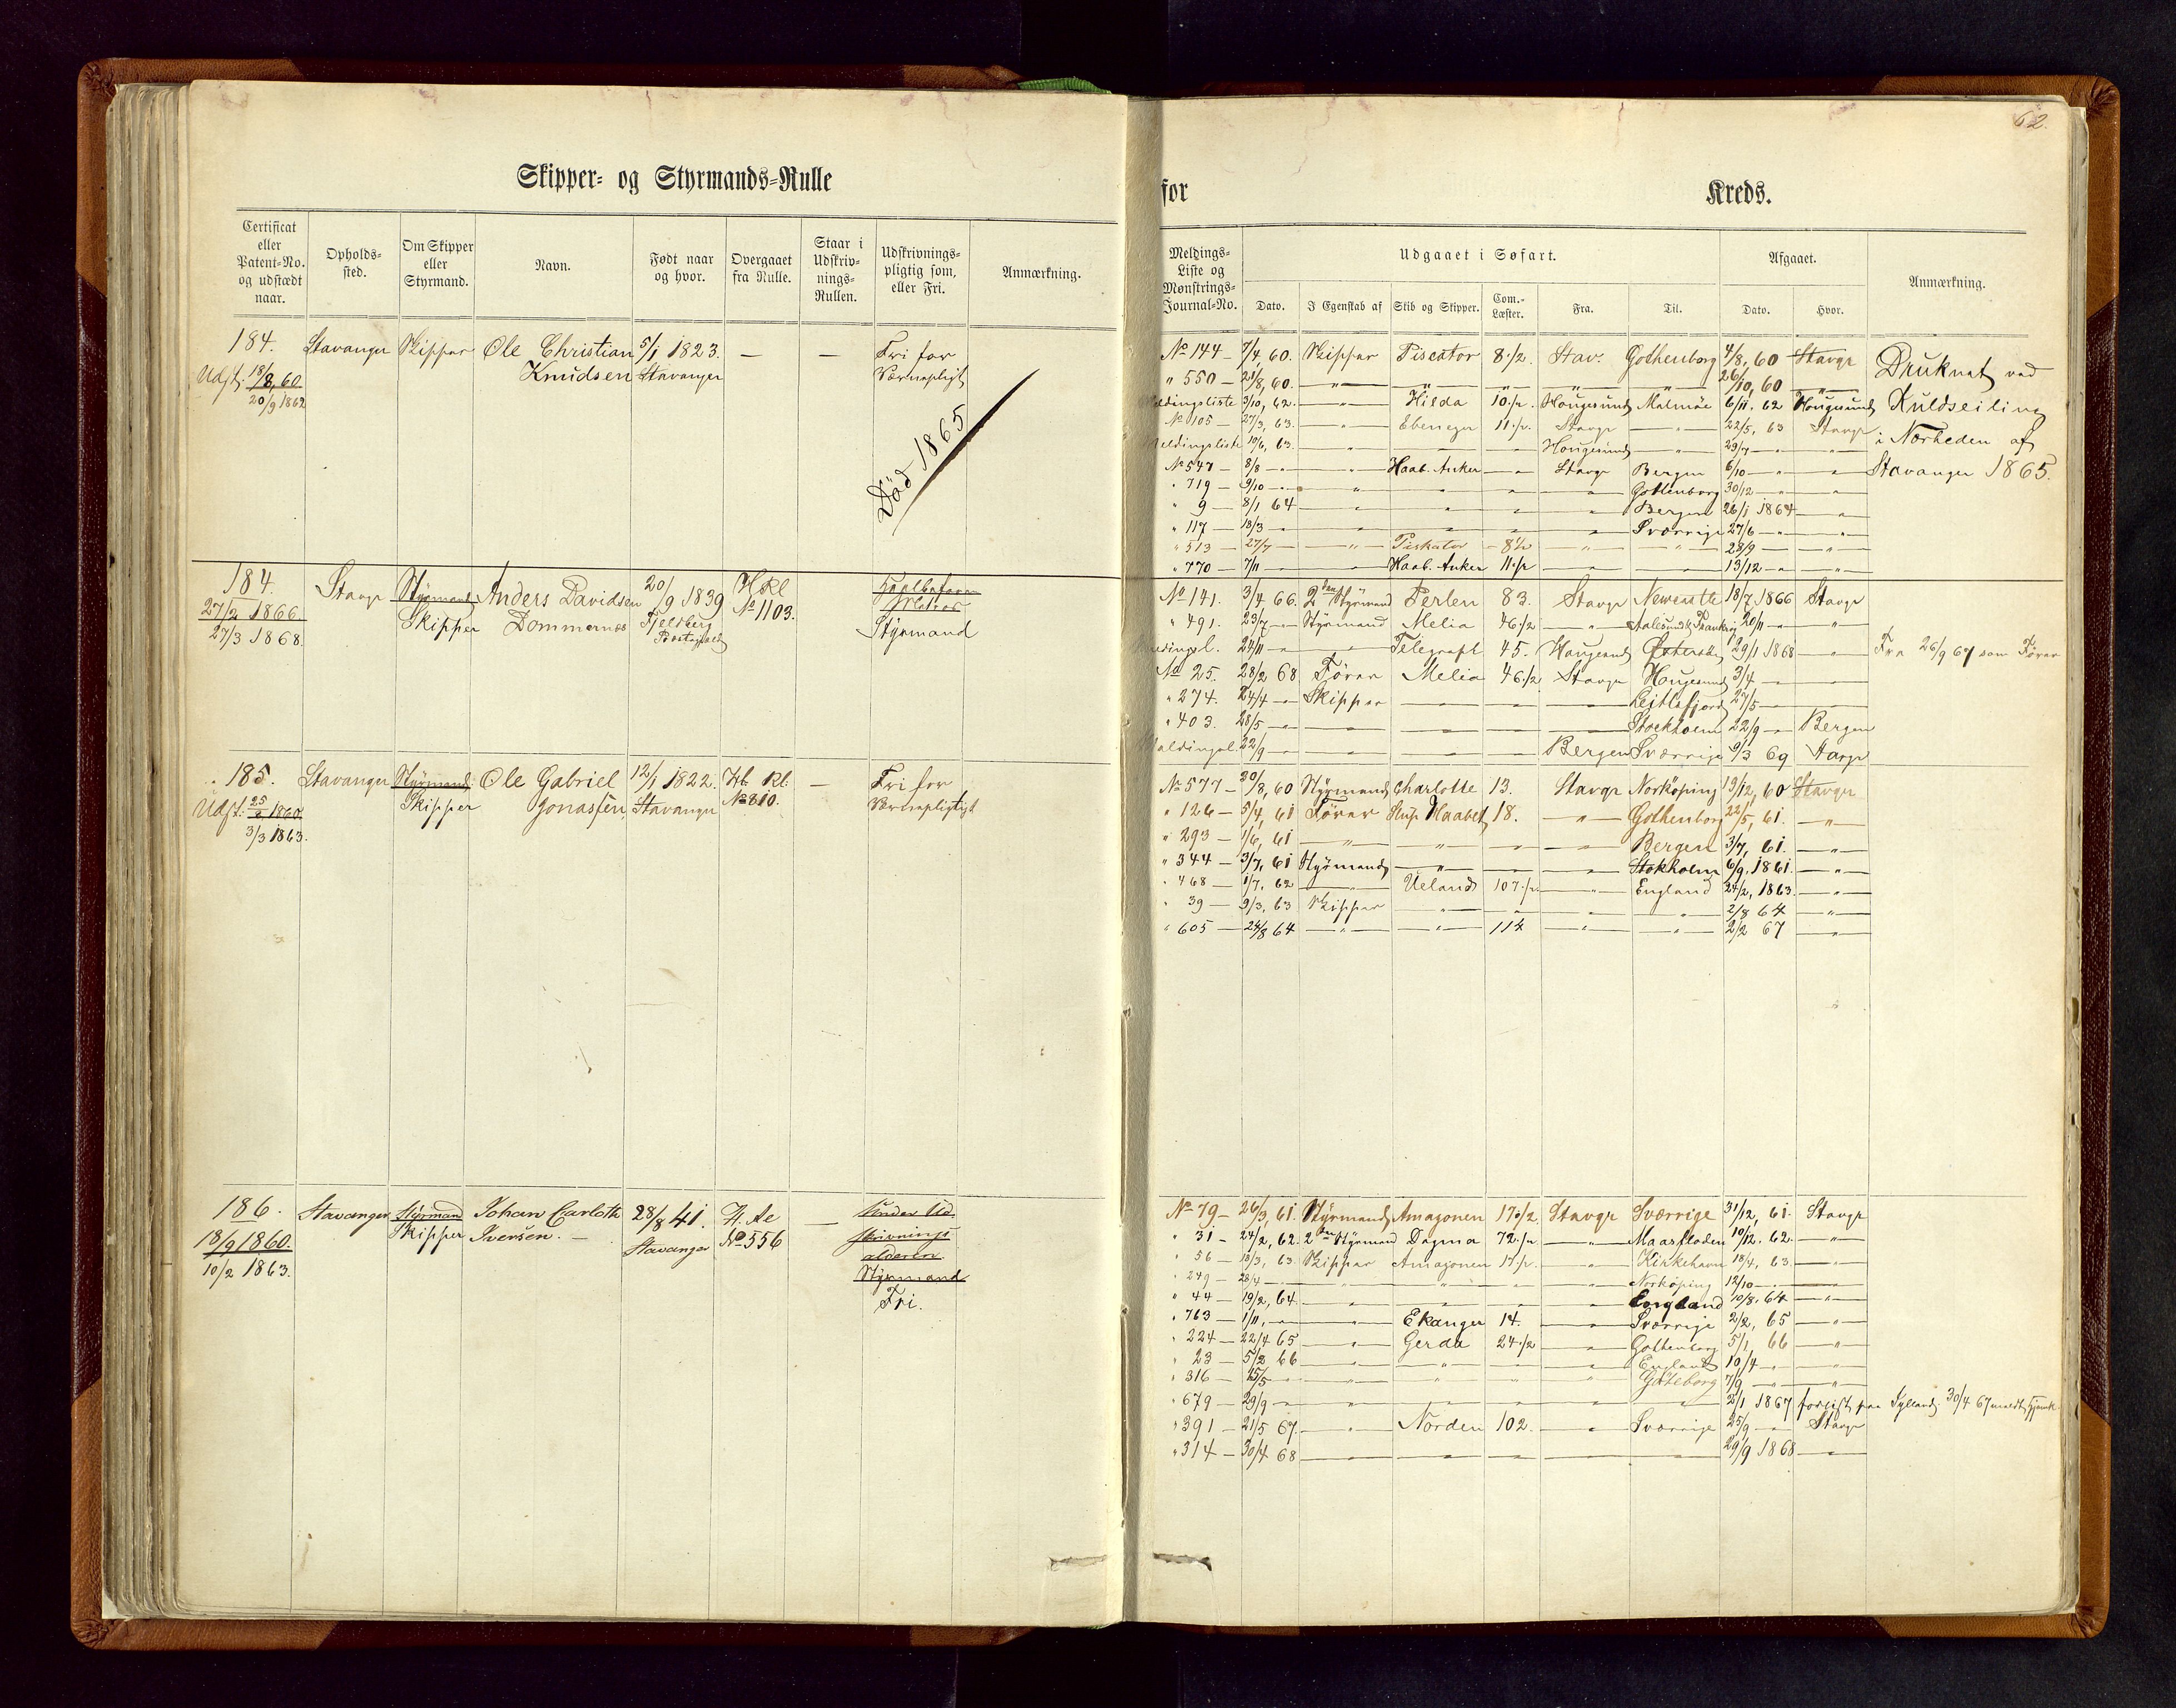 62.
Skipper- og Styrmands-Rulle
for Kreds.
Certificat eller Patent-No. og udstædt naar.
Opholds-sted.
Om Skipper eller Styrmand.
Navn.
Født naar og hvor.
Overgaaet fra Rulle.
Staar i Udskriv-nings-Rullen.
Udskrivnings-pligtig som, eller Fri.
Anmærkning.
Meldings-Liste og Mønstrings-Journal-No.
Udgaaet i Søfart.
Dato. I Egenskab af Skib og Skipper. Com.-Læster. Fra. Til.
Afgaaet.
Dato. Hvor.
Anmærkning.
184. Stavanger Skipper Ole Christian 5/1 1823. — — Fri for
Udst. 18/8, 60 Knudsen Stavanger Værnepligt
20/9 1862
Död 1865
No 144 — 7/4, 60. Skipper Piscator 8 1/2. Stav. Gothenborg 4/8, 60 Stavgr
" 550 — 21/8, 60. " " " " " 26/10, 60 "
Meldingsliste 3/10, 62. " Hilda 10 1/2. Hougesund Malmöe 6/11. 62 Hougesund
No 105 — 27/3, 63. " Ebeneser 11 1/2. Stavgr — 22/5, 63 Stavgr
Meldingsliste 19/6, 63. — — — Hougesund — 29/7 — "
No 547 — 8/8 — " Haab. Anker — " Stavgr Bergen 6/10 — "
" 719 — 9/10 — " " " " Gothenborg 30/12 — "
" 9 — 8/1 64 " " " " Bergen 26/1 1864 — "
" 117 — 18/3 — " " " " Sverrige 27/6 — "
" 513 — 27/7 — " Piskator — 8 1/2 — " — " 28/9 — "
" 770 — 7/11 — Haab. Anker 11 1/2 — — 13/12 — "
Druknet ved
Kuldseiling
i Nærheden af
Stavanger 1865.
184. Stavgr Styrmand Anders Davidsen 20/9 1839 H Rl
27/2 1866. Skipper Dommernes Fjeldberg No 1103.
27/3 1868. Præstegjeld
Styrmand
No 141. 3/4 66. 2den Styrmand Perlen 83. Stavgr Newcastle 18/7 1866 Stavgr
" 491. 23/7 — Styrmand Melia 46 1/2 " Aalesund & Frankrig 20/11 — "
Meldingsl. 24/11 — " Telegraft 45. Hougesund Østersöen 29/1 1868 — "
No 25. 28/2 68 Förer Melia 46 1/2 Stavgr Hougesund 3/4 —
" 274. 24/4 — Skipper — — — 27/5 —
" 403. 28/5 — — — — — Stockholm 22/9 — Bergen
Meldingsl. 22/9 — — — — Bergen Sverrige 9/3 69 Stavgr
Fra 26/9 67 som Förer
185. Stavanger Styrmand Ole Gabriel 12/1 1822. Hb Rl: — Fri for
Udst. 25/8 1860. Skipper Jonassen Stavanger No 810. Værnepligtigt
3/3 1863.
No 577 — 30/8, 60 Styrmand Charlotte 13. Stavgr Norköping 19/12, 60 Stavgr
" 126 — 5/4, 61 Förer Slup Haabet 18. — " Gothenborg 22/5, 61. — "
" 293 — 1/6, 61 — " — " — Bergen 3/7, 61. — "
" 344 — 3/7, 61 Styrmand — " — Stokholm 6/9, 1861. — "
" 468 — 1/7, 62 — Ueland 107 1/2. — " England 24/2, 1863. — "
" 39 — 9/3, 63 Skipper — " — " — " 2/8 64 — "
" 605 — 24/8 64 — " — " 114 — " — " 2/2 67 — "
186. Stavanger Styrmand Johan Carloth 28/8 41. H. Ae — Under Ud
18/9 1860. Skipper Iversen. — Stavanger No 556 skrivnings
10/2 1863. alderen
Styrmand
Fri.
No 79 — 26/3, 61. Styrmand Amazonen 17 1/2. Stavgr Sverrige 31/12, 61. Stavgr
" 31 — 24/2, 62. 2den Styrmand Dagma 72 1/2 — " Maassloden 10/12. 62. — "
" 56 — 18/3, 63. Skipper Amazonen 17 1/2. — " Kirkehavn 18/4, 63. — "
" 249 — 28/4 — — " — " Norköping 12/10 — "
" 44 — 19/2, 64. — " — " England 10/8. 64 — "
" 763 — 1/11, — " Ekanger 14. — " Sverrige 2/2, 65 — "
" 224 — 22/4 65 — " Gerda 24 1/2 — " Gothenborg 5/1, 66 — "
" 23 — 5/2 66 — " — " England 10/4 — "
" 316 — 15/5 — — " — " Göteborg 7/9 — "
" 679 — 29/9 — — " — " 2/1 1867 forlist paa Jylland 30/4 67 meldt Hjemk.
" 391 — 21/5 67. — " Norden 102. — " Sverrige 25/9 — Stavgr
" 314 — 30/4 68 — — — — — 29/9 1868 — "